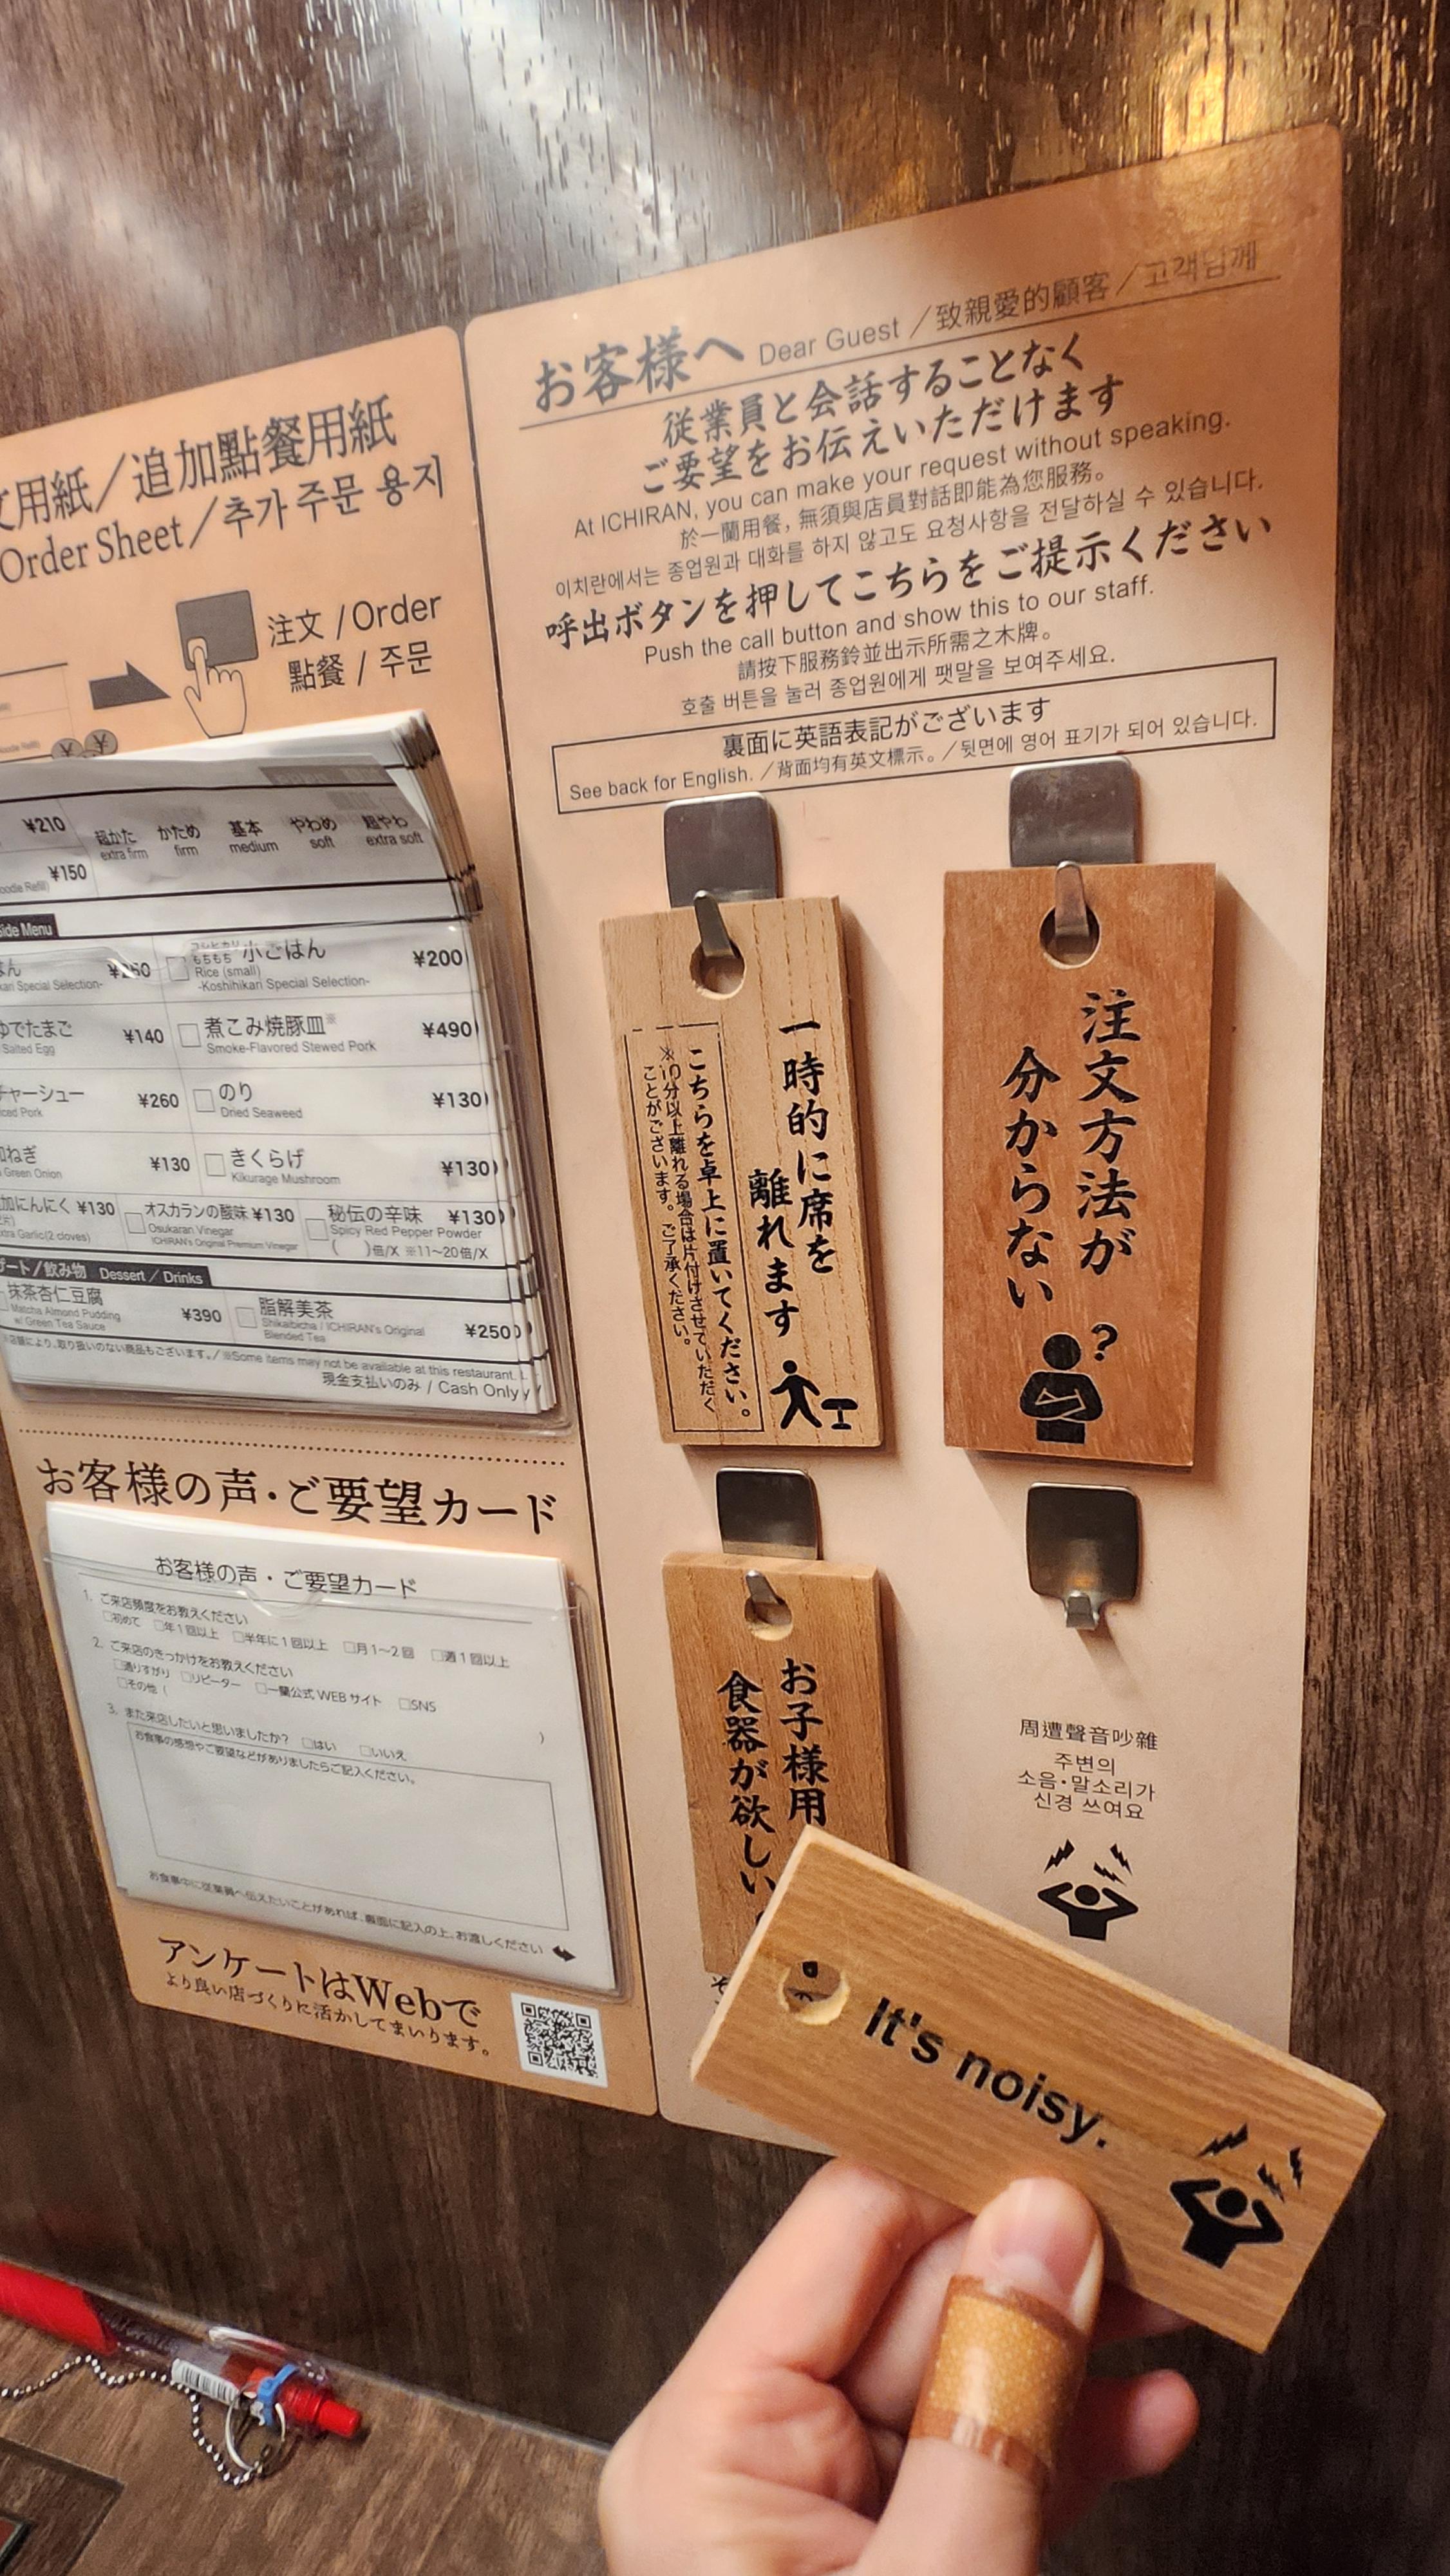 文用紙／追加點餐用紙
Order Sheet／추가 주문 용지
注文 /Order
點餐 / 주문
¥210
超かた かため 基本 やわめ 超やわ
extra firm firm medium soft extra soft
¥150
Side Menu
¥250
もちもち 小ごはん ¥200
Rice (small)
-Koshihikari Special Selection-
ゆでたまご ¥140
Salted Egg
煮こみ焼豚皿※ ¥490
Smoke-Flavored Stewed Pork
チャーシュー ¥260
Pork
のり ¥130
Dried Seaweed
ねぎ ¥130
Green Onion
きくらげ ¥130
Kikurage Mushroom
加にんにく ¥130
Extra Garlic(2 cloves)
オスカランの酸味 ¥130
Osukaran Vinegar
ICHIRAN's Original Premium Vinegar
秘伝の辛味 ¥130
Spicy Red Pepper Powder
( )倍/X ※11～20倍/X
ート／飲み物 Dessert／Drinks
抹茶杏仁豆腐 ¥390
Matcha Almond Pudding
w/ Green Tea Sauce
脂解美茶 ¥250
Shikaibicha / ICHIRAN's Original
Blended Tea
※店舗により、取り扱いのない商品もございます。／※Some items may not be available at this restaurant.
現金支払いのみ / Cash Only
お客様の声・ご要望カード
お客様の声・ご要望カード
1. ご来店頻度をお教えください
□初めて □年1回以上 □半年に1回以上 □月1～2回 □週1回以上
2. ご来店のきっかけをお教えください
□通りすがり □リピーター □一蘭公式WEBサイト □SNS
□その他 ( )
3. また来店したいと思いましたか? □はい □いいえ
お食事の感想やご要望などがありましたらご記入ください。
お食事中に従業員へ伝えたいことがあれば、裏面に記入の上、お渡しください
アンケートはWebで
より良い店づくりに活かしてまいります。
お客様へ Dear Guest ／致親愛的顧客／고객님께
従業員と会話することなく
ご要望をお伝えいただけます
At ICHIRAN, you can make your request without speaking.
於一蘭用餐，無須與店員對話即能為您服務。
이치란에서는 종업원과 대화를 하지 않고도 요청사항을 전달하실 수 있습니다.
呼出ボタンを押してこちらをご提示ください
Push the call button and show this to our staff.
請按下服務鈴並出示所需之木牌。
호출 버튼을 눌러 종업원에게 팻말을 보여주세요.
裏面に英語表記がございます
See back for English. ／背面均有英文標示。／뒷면에 영어 표기가 되어 있습니다.
一時的に席を
離れます
こちらを卓上に置いてください。
※10分以上離れる場合は片付けさせていただく
ことがございます。ご了承ください。
注文方法が
分からない
?
お子様用
食器が欲しい
周遭聲音吵雜
주변의
소음・말소리가
신경 쓰여요
It's noisy.